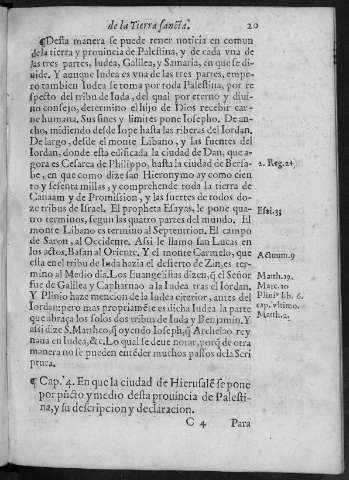 de la Tierra sancta. 20
¶Desta manera se puede tener noticia en comun
de la tierra y prouincia de Palestina, y de cada vna de
las tres partes, Iudea, Galilea, y Samaria, en que se di-
uide. Y aunque Iudea es vna de las tres partes, empe-
ro tambien Iudea se toma por toda Palestina, por re
specto del tribu de Iuda, del qual por eterno y diui-
no consejo, determino el hijo de Dios recebir car-
ne humana. Sus fines y limites pone Iosepho. De an-
cho, midiendo desde Iope hasta las riberas del Iordan.
De largo, desde el monte Libano, y las fuentes del
Iordan, donde esta edificada la ciudad de Dan, que a-
gora es Cesarea de Philippo, hasta la ciudad de Bersa-
be, en que como dize san Hieronymo ay como cien
to y sesenta millas, y comprehende toda la tierra de
Canaam y de Promission, y las suertes de todos do-
ze tribus de Israel. El propheta Esayas, le pone qua-
tro terminos, segun las quatro partes del mundo. El
monte Libano es termino al Septentrion. El campo
de Saron, al Occidente. Assi le llamo san Lucas en
los actos, Basan al Oriente, Y el monte Carmelo, que
esta en el tribu de Iuda hazia el desierto de Zin, es ter-
mino al Medio dia. Los Euangelistas dizen, q̃ el Señor
fue de Galilea y Capharnao a la Iudea tras el Iordan.
Y Plinio haze mencion de la Iudea citerior, antes del
Iordan: pero mas propriamẽte es dicha Iudea la parte
que abraça los solos dos tribus de Iuda y Benjamin. Y
assi dize S. Mattheo, q̃ oyendo Ioseph, q̃ Archelao rey
naua en Iudea, &c. Lo qual se deue notar, porq̃ de otra
manera no se pueden entẽder muchos passos dela Scri
ptura.
2. Reg. 24
Esai. 33
Actuum. 9
Matth. 19.
Marc. 10
Plini⁹ lib. 6.
cap. vltimo.
Matth. 2.
¶ Cap. 4. En que la ciudad de Hierusalẽ se pone
por pũcto y medio desta prouincia de Palesti-
na, y su descripcion y declaracion.
C 4 Para